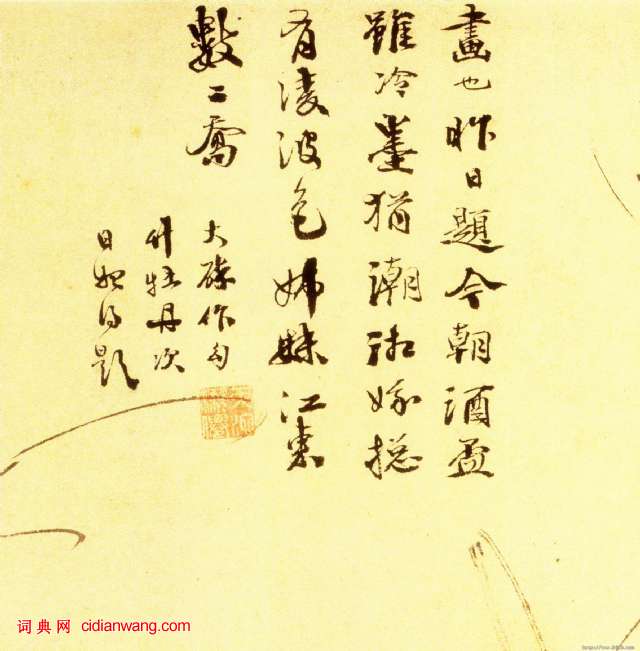 畫也昨日題今朝酒盃
雖冷墨猶潮湘娥摠
有淩波色姊妹江東
數二喬
大滌作勾
竹牡丹次
日始得題
词典网 cidianwang.com